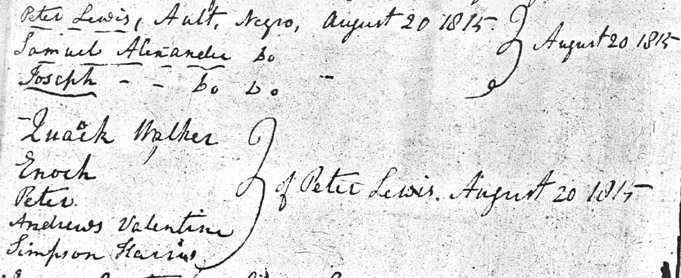 Peter Lewis, Ault, Negro, August 20 1815.
Samuel Alexander Do
Joseph - - Do Do "
August 20 1815
Quack Walker
Enoch
Peter.
Andrews Valentine
Simpson Harris
of Peter Lewis. August 20 1815